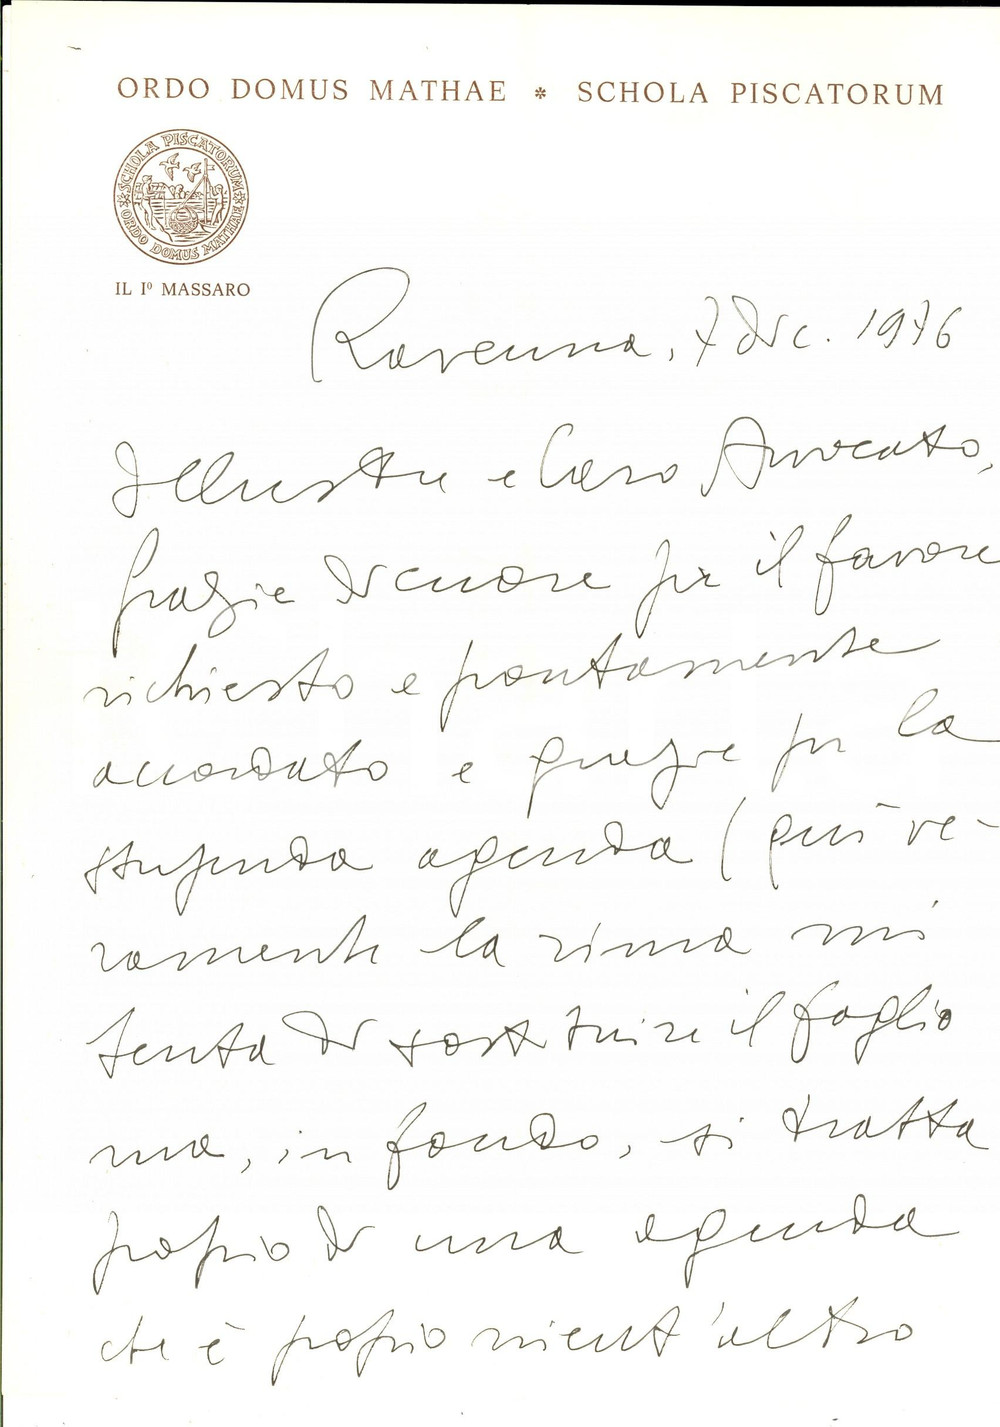 ORDO DOMUS MATHAE * SCHOLA PISCATORUM
SCHOLA PISCATORUM * ORDO DOMUS MATHAE *
IL I⁰ MASSARO
Ravenna, 7 dic. 1976
Illustre e Caro Avvocato,
grazie di cuore per il favore
richiesto e prontamente
accordato e grazie per la
stupenda agenda (qui ve-
ramente la rima mi
tenta di sostituire il foglio
ma, in fondo, si tratta
proprio di una agenda
che è proprio nient'altro